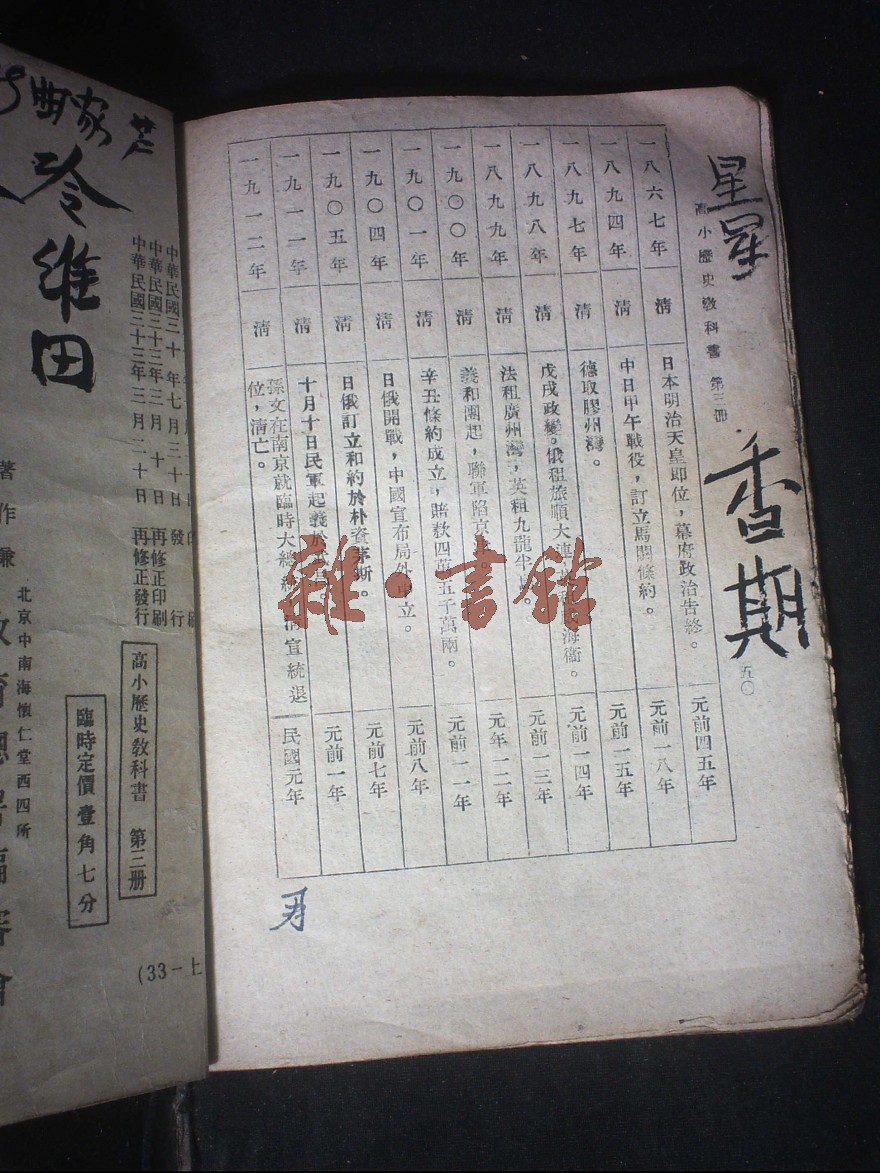 星星
香期
高小歷史敎科書　第三册
五〇
一八六七年　淸　日本明治天皇即位，幕府政治吿終。　元前四五年
一八九四年　淸　中日甲午戰役，訂立馬關條約。　元前一八年
一八九七年　淸　德取膠州灣。　元前一五年
一八九八年　淸　戊戌政變。俄租旅順大連海衞。　元前一四年
一八九九年　淸　法租廣州灣，英租九龍半　元前一三年
一九〇〇年　淸　義和團起，聯軍陷京　元年一二年
一九〇一年　淸　辛丑條約成立，賠欵四萬五千萬兩。　元前一一年
一九〇四年　淸　日俄開戰，中國宣布局外中立。　元前八年
一九〇五年　淸　日俄訂立和約於朴資茅斯。　元前七年
一九一一年　淸　十月十日民軍起義於　元前一年
一九一二年　淸　孫文在南京就臨時大總宣統退
位，淸亡。　民國元年
雜·書館
中華民國三十年七月三十日發行
中華民國三十三年三月十日再修正印刷
中華民國三十三年三月二十日再修正發行
高小歷史敎科書　第三册
臨時定價壹角七分
北京中南海懷仁堂西四所
著作兼
維田
(33一上